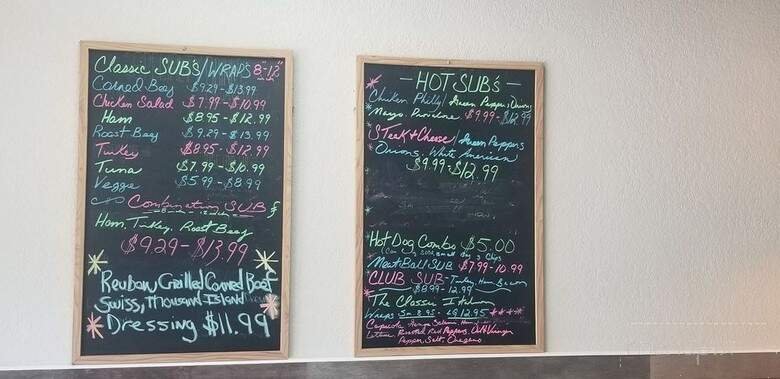 Classic SUB's/WRAP'S 8-12"
Corned Beef $9.29-$13.99
Chicken Salad $7.99-$10.99
Ham $8.95-$12.99
Roast Beef $9.29-$13.99
Turkey $8.95-$12.99
Tuna $7.99-$10.99
Veggie $5.99-$8.99
Combination SUB
Ham, Turkey, Roast Beef
$9.29-$13.99
Reuban Grilled Corned Beef
Swiss, Thousand Island
Dressing $11.99
- HOT SUB's -
Chicken Philly/ Green Peppers Onions
Mayo, Provolone $9.99-$12.99
STeak & Cheese/ Green Peppers
Onions, White American
$9.99-$12.99
Hot Dog Combo $5.00
Can soda small Chips
MeatBall SUB $7.99-10.99
CLUB SUB- Turkey, Ham Bacon
$8.99-12.99
The Classic Italian
Wraps Sm. 8.95 - LG 12.95 ****
Capicola Genoa Salami, Ham
Lettuce Roasted Red Peppers, Oil & Vinegar
Pepper, Salt, Oregano